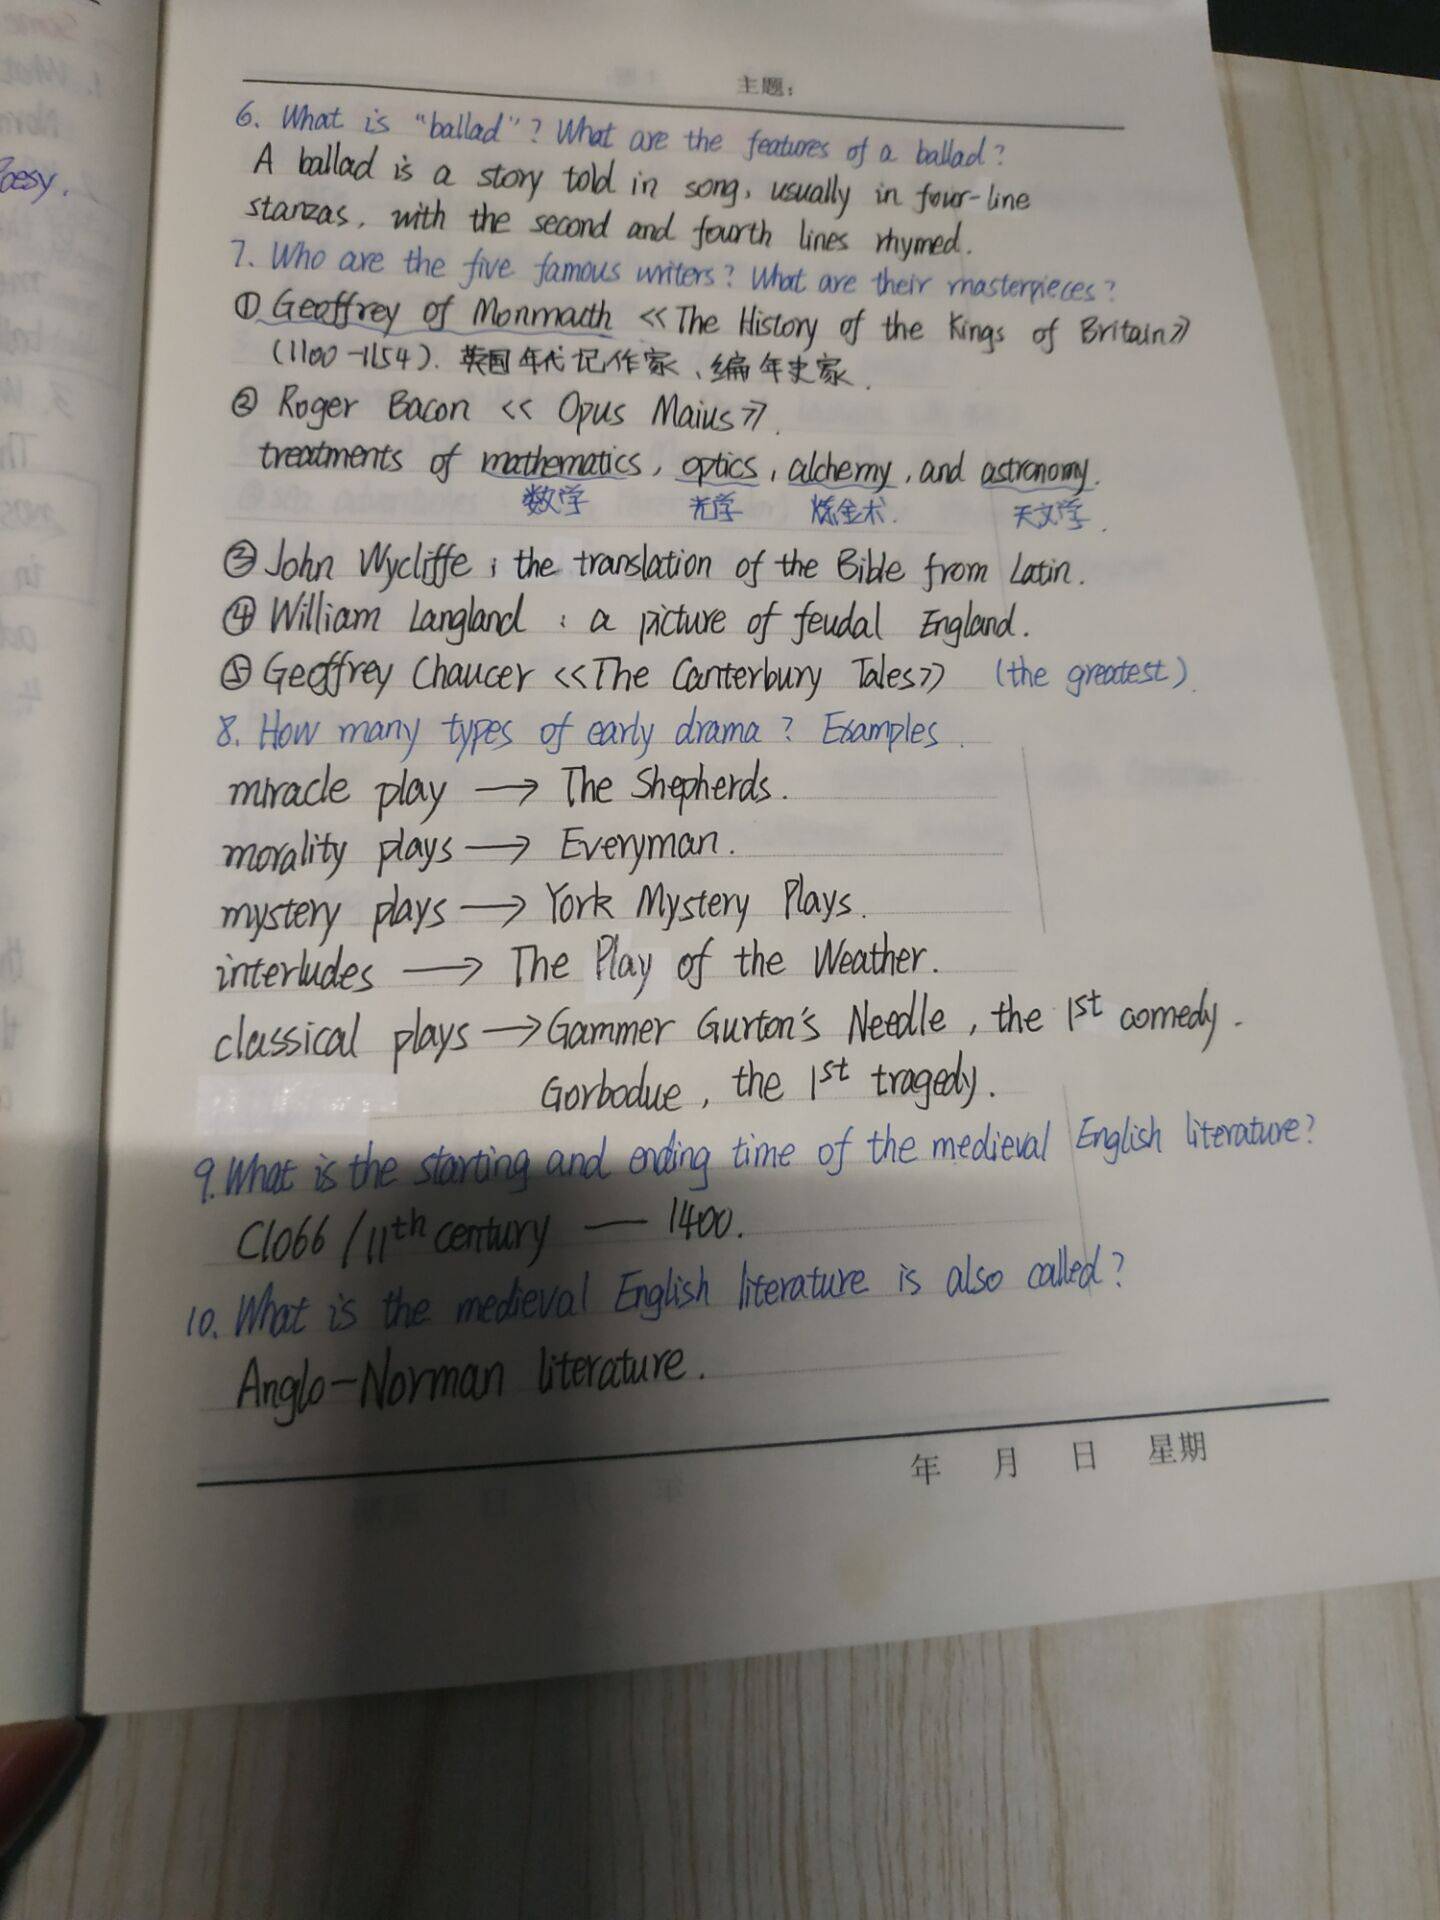 主题:
6. What is "ballad"? What are the features of a ballad?
A ballad is a story told in song, usually in four-line
stanzas, with the second and fourth lines rhymed.
7. Who are the five famous writers? What are their masterpieces?
① Geoffrey of Monmouth <<The History of the Kings of Britain>>
(1100-1154). 英国年代记作家、编年史家.
② Roger Bacon << Opus Maius>>.
treatments of mathematics, optics, alchemy, and astronomy.
数学 光学 炼金术. 天文学.
③ John Wycliffe: the translation of the Bible from Latin.
④ William Langland: a picture of feudal England.
⑤ Geoffrey Chaucer <<The Canterbury Tales>> (the greatest).
8. How many types of early drama? Examples.
miracle play → The Shepherds.
morality plays → Everyman.
mystery plays → York Mystery Plays.
interludes → The Play of the Weather.
classical plays → Gammer Gurton's Needle, the 1st comedy.
Gorbodue, the 1st tragedy.
9. What is the starting and ending time of the medieval English literature?
C1066/11th century — 1400.
10. What is the medieval English literature is also called?
Anglo-Norman literature.
年 月 日 星期
Poesy.